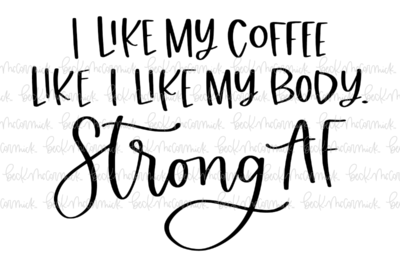 I LIKE MY COFFEE
LIKE I LIKE MY BODY.
Strong AF